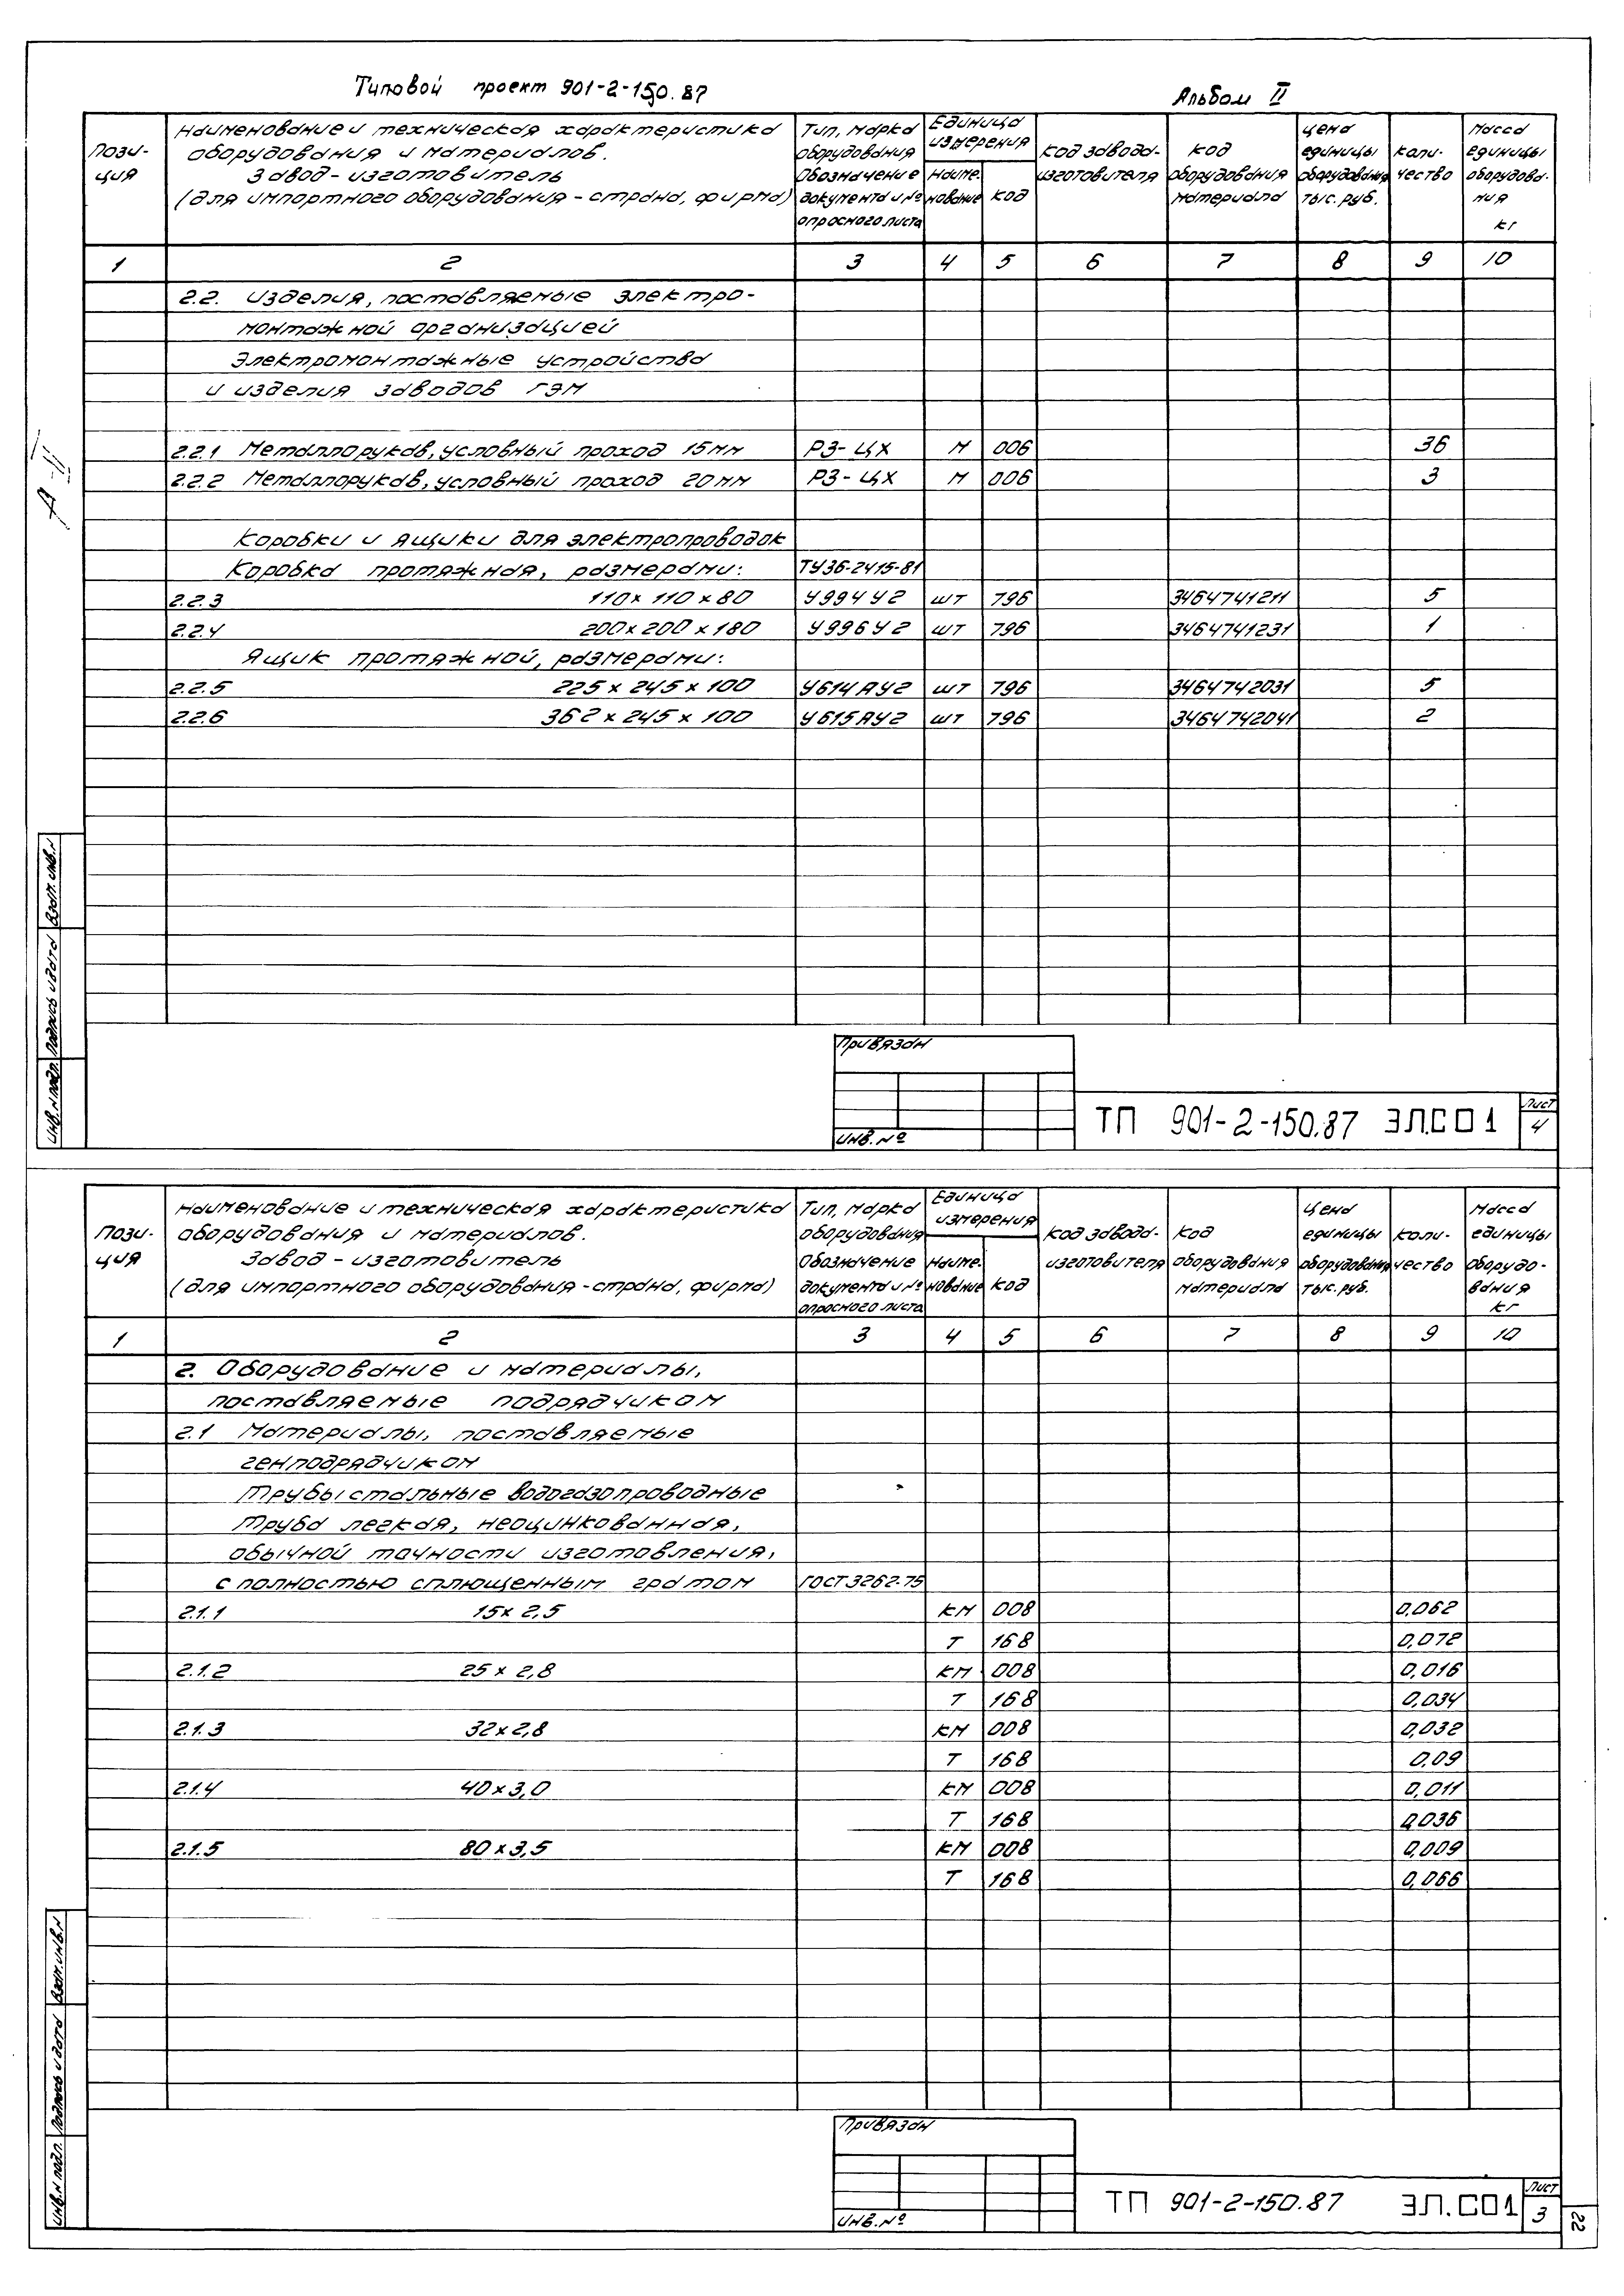 Типовой проект 901-2-150.87
Альбом II
А-II
Пози-
ция
Наименование и техническая характеристика
оборудования и материалов.
Завод-изготовитель
(для импортного оборудования - страна, фирма)
Тип, марка
оборудования
Обозначение
документа и №
опросного листа
Единица
измерения
Наиме-
нование
код
код завода-
изготовителя
код
оборудования
материала
цена
единицы
оборудования
тыс. руб.
коли-
чество
Масса
единицы
оборудова-
ния
кг
1 2 3 4 5 6 7 8 9 10
2.2. Изделия, поставляемые электро-
монтажной организацией
Электромонтажные устройства
и изделия заводов ГЭМ
2.2.1 Металлорукав, условный проход 15мм РЗ-ЦХ М 006 36
2.2.2 Металлорукав, условный проход 20мм РЗ-ЦХ М 006 3
Коробки и ящики для электропроводок
Коробка протяжная, размерами: ТУ36-2415-81
2.2.3 110х110х80 У994У2 шт 796 3464741211 5
2.2.4 200х200х180 У996У2 шт 796 3464741231 1
Ящик протяжной, размерами:
2.2.5 225х245х100 У614АУ2 шт 796 3464742031 5
2.2.6 362х245х100 У615АУ2 шт 796 3464742041 2
Взам. инв. N
Подпись и дата
Инв. N подл.
Привязан
Инв. №
ТП 901-2-150.87 ЭЛ.СО1
Лист
4
Пози-
ция
Наименование и техническая характеристика
оборудования и материалов.
Завод-изготовитель
(для импортного оборудования - страна, фирма)
Тип, марка
оборудования
Обозначение
документа и №
опросного листа
Единица
измерения
Наиме-
нование
код
код завода-
изготовителя
код
оборудования
материала
Цена
единицы
оборудования
тыс. руб.
коли-
чество
Масса
единицы
оборудо-
вания
кг
1 2 3 4 5 6 7 8 9 10
2. Оборудование и материалы,
поставляемые подрядчиком
2.1 Материалы, поставляемые
генподрядчиком
Трубы стальные водогазопроводные
Труба легкая, неоцинкованная,
обычной точности изготовления,
с полностью сплющенным гратом ГОСТ 3262-75
2.1.1 15х2,5 км 008 0,062
Т 168 0,072
2.1.2 25х2,8 км 008 0,016
Т 168 0,034
2.1.3 32х2,8 км 008 0,032
Т 168 0,09
2.1.4 40х3,0 км 008 0,011
Т 168 0,036
2.1.5 80х3,5 км 008 0,009
Т 168 0,066
Взам. инв. N
Подпись и дата
Инв. N подл.
Привязан
Инв. №
ТП 901-2-150.87 ЭЛ.СО1
Лист
3
22